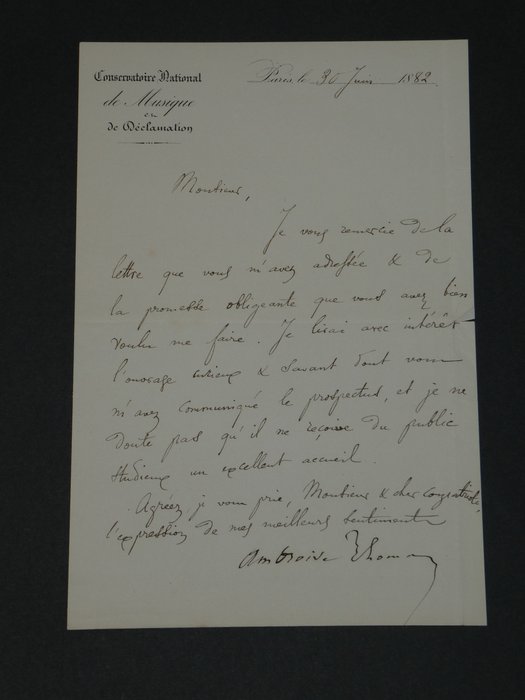 Conservatoire National
de Musique
et
de Déclamation
Paris, le 30 Juin 1882
Monsieur,
Je vous remercie de la
lettre que vous m'avez adressée & de
la promesse obligeante que vous avez bien
voulu me faire. Je lirai avec intérêt
l'ouvrage curieux & savant dont vous
m'avez communiqué le prospectus, et je ne
doute pas qu'il ne reçoive du public
studieux un excellent accueil.
Agréez, je vous prie, Monsieur & cher compatriote,
l'expression de mes meilleurs sentiments
Ambroise Thomas